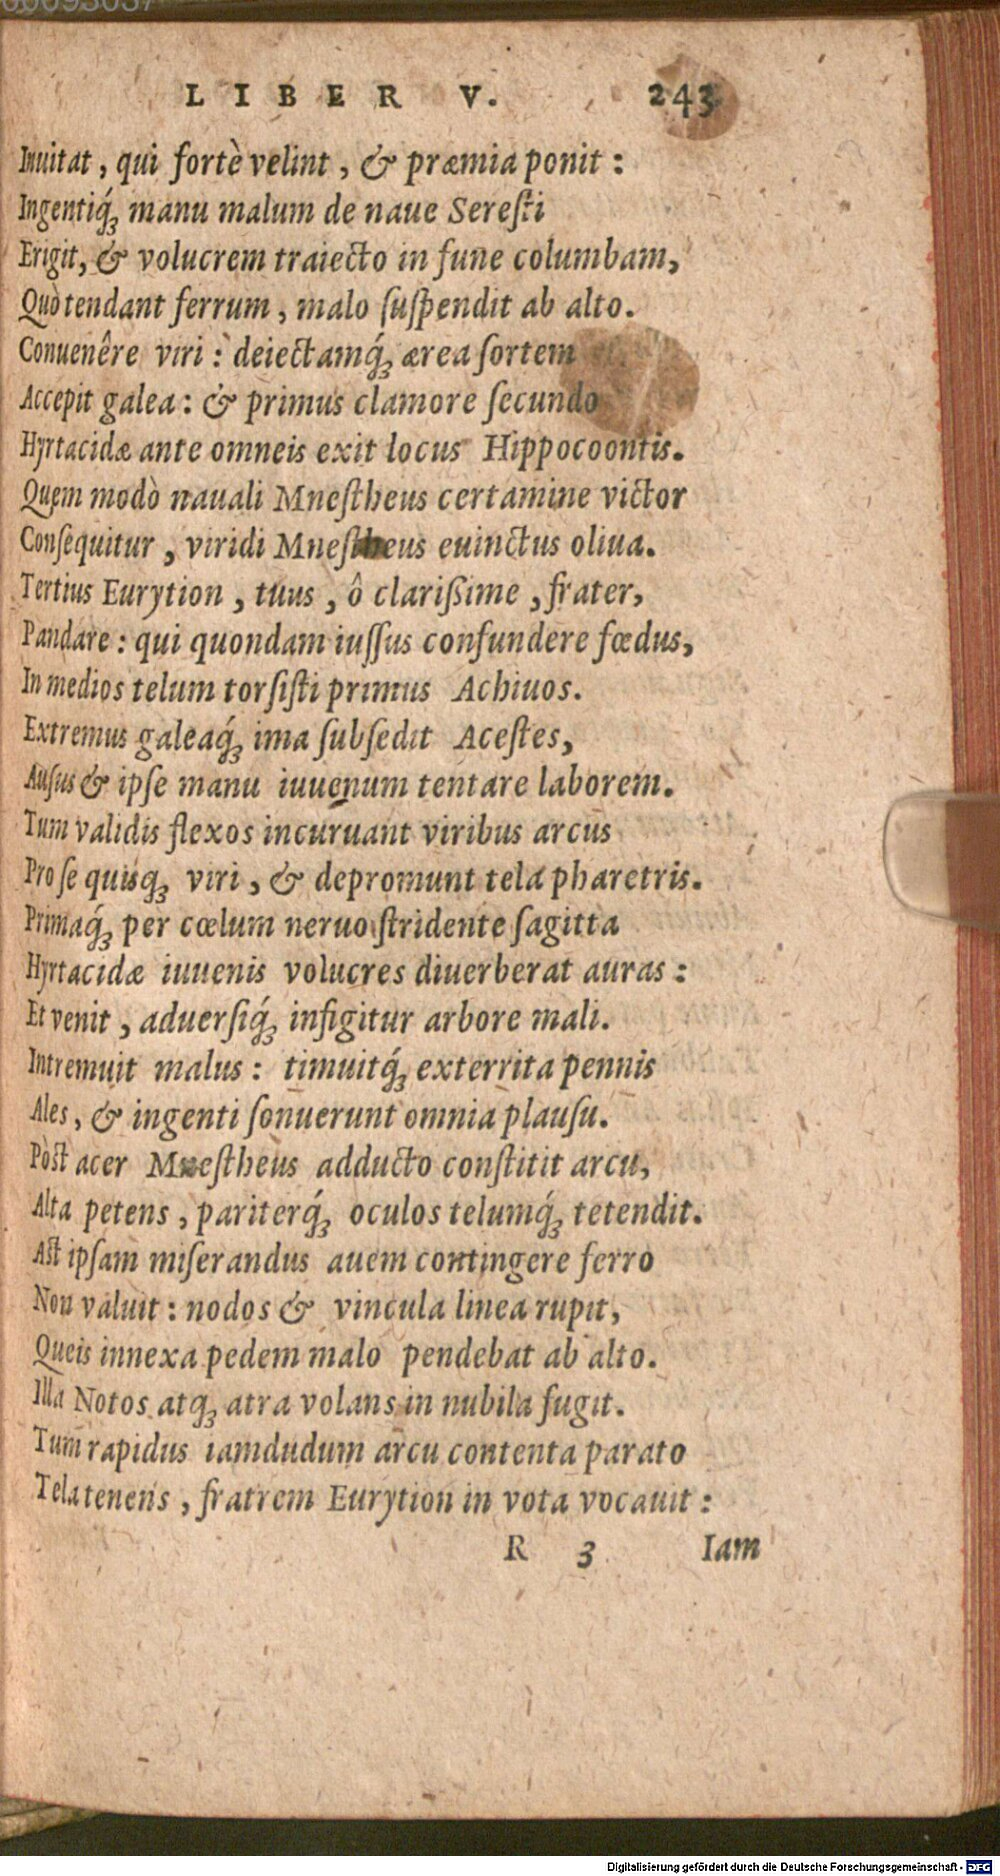 LIBER V. 243
Inuitat, qui fortè velint, & præmia ponit:
Ingentiq́ꝫ manu malum de naue Sereſti
Erigit, & volucrem traiecto in fune columbam,
Quò tendant ferrum, malo ſuſpendit ab alto.
Conuenêre viri: deiectamq́ꝫ ærea ſortem
Accepit galea: & primus clamore ſecundo
Hyrtacidæ ante omneis exit locus Hippocoontis.
Quem modò nauali Mneſtheus certamine victor
Conſequitur, viridi Mneſtheus euinctus oliua.
Tertius Eurytion, tuus, ô clarißime, frater,
Pandare: qui quondam iuſſus confundere fœdus,
In medios telum torſiſti primus Achiuos.
Extremus galeaq́ꝫ ima ſubſedit Aceſtes,
Auſus & ipſe manu iuuenum tentare laborem.
Tum validis flexos incuruant viribus arcus
Pro ſe quisqꝫ viri, & depromunt tela pharetris.
Primaq́ꝫ per cœlum neruo ſtridente ſagitta
Hyrtacidæ iuuenis volucres diuerberat auras:
Et venit, aduerſiq́ꝫ infigitur arbore mali.
Intremuit malus: timuitq́ꝫ exterrita pennis
Ales, & ingenti ſonuerunt omnia plauſu.
Pòſt acer Mneſtheus adducto conſtitit arcu,
Alta petens, pariterq́ꝫ oculos telumq́ꝫ tetendit.
Aſt ipſam miſerandus auem contingere ferro
Non valuit: nodos & vincula linea rupit,
Queis innexa pedem malo pendebat ab alto.
Illa Notos atqꝫ atra volans in nubila fugit.
Tum rapidus iamdudum arcu contenta parato
Tela tenens, fratrem Eurytion in vota vocauit:
R 3 Iam
Digitalisierung gefördert durch die Deutsche Forschungsgemeinschaft - DFG